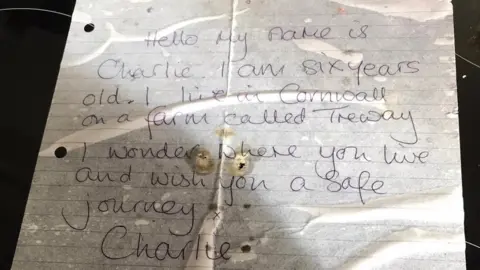 Hello My name is
Charlie. I am six years
old. I live in Cornwall
on a farm called Treway
I wonder where you live
and wish you a safe
journey x
Charlie